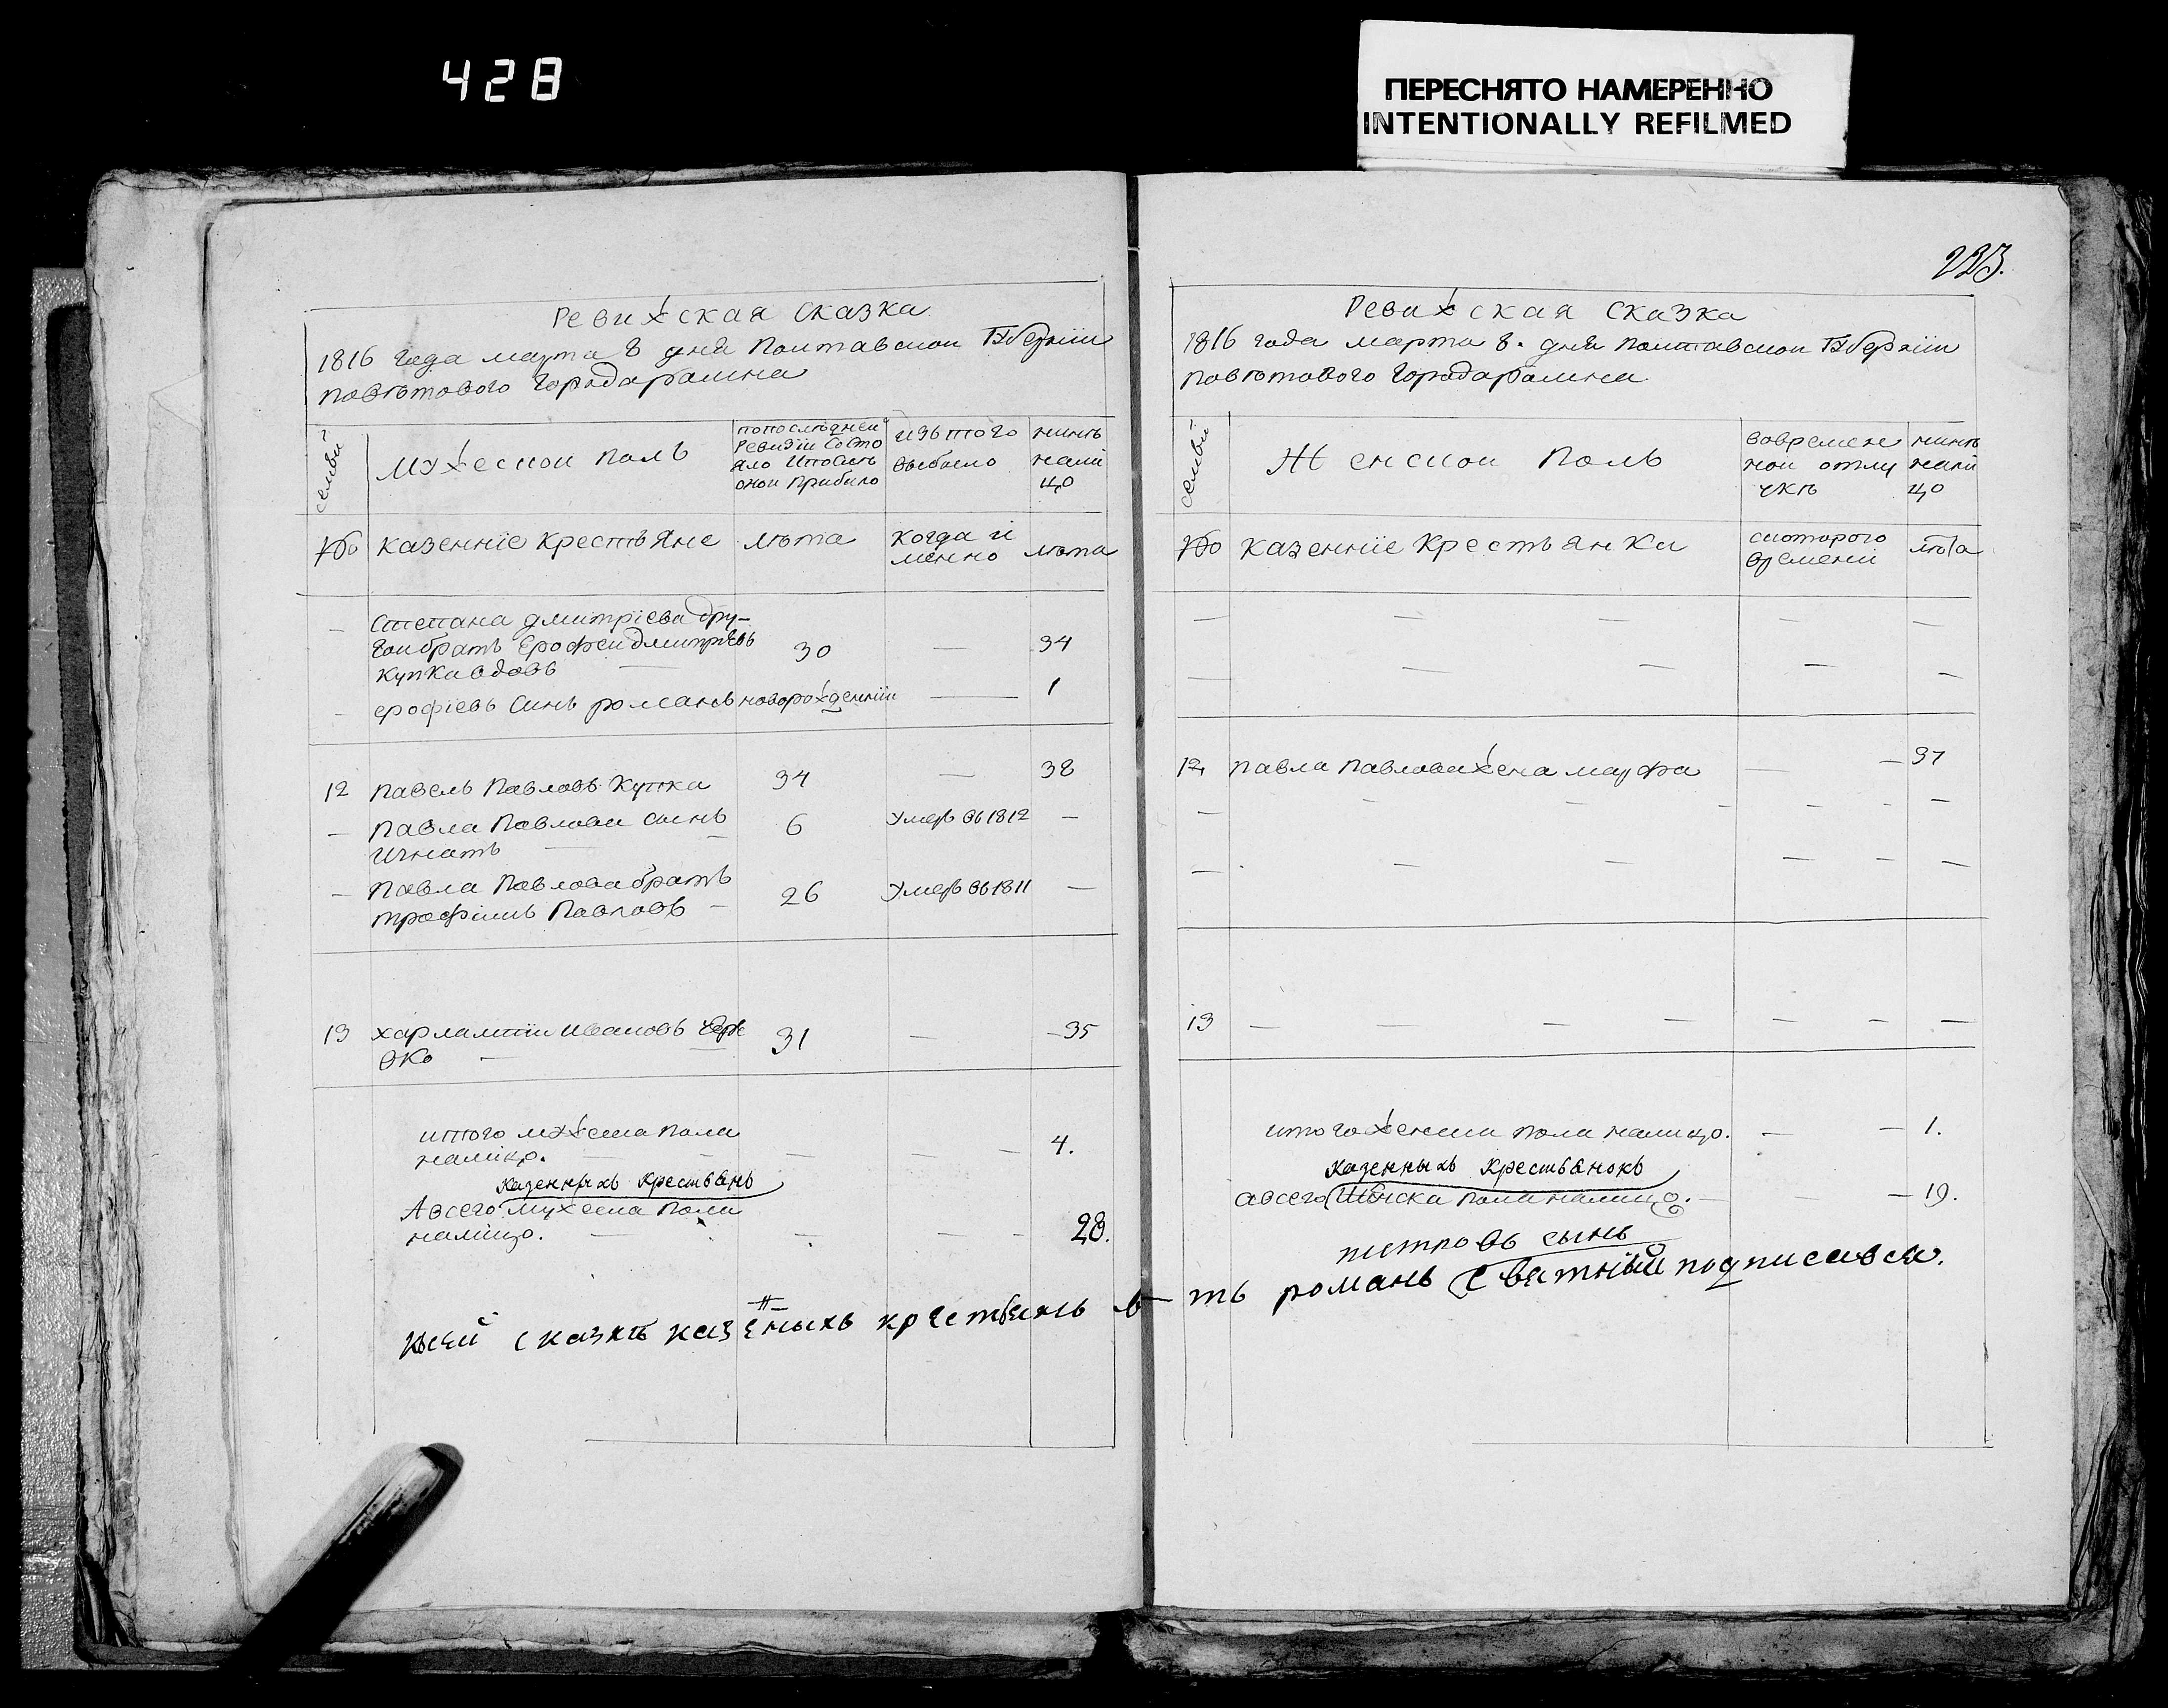 428
ПЕРЕСНЯТО НАМЕРЕННО
INTENTIONALLY REFILMED
Ревижская сказка
1816 года марта 8 дня полтавскои Губернїи
повѣтового города
семьи
мужескои полъ
попослѣдней
Ревизїи Состо
яло Ипослѣ
онои прибыло
изътого
выбыло
нинѣ
нали
цо
казеннїе крестьяне
лѣта
когда и
менно
лѣта
Степана дмитрїева дру-
гои братъ Ерофеи дмитрїевъ
купка вдовъ
30
—
34
ерофїевъ Синъ романъ новорожденнїи
—
1
12 павелъ Павловъ Купка
34
—
38
— Павла Павлова сынъ
Игнатъ
6
Умеръ въ 1812
—
— Павла Павлова братъ
трофимъ Павловъ
26
Умеръ въ 1811
—
13 харлампїи Ивановъ
31
—
35
итого мужеска пола
налицо.
4.
казенныхъ крестьянъ
Авсего мужеска пола
налицо.
28.
223.
Ревижская сказка
1816 года марта 8. дня полтавскои Губернїи
повѣтового города
семьи
Женскои Полъ
вовремен
нои отлу
чкѣ
нинѣ
нали
цо
казеннїе Крестьянки
скоторого
времени
лѣта
12 павла Павлова жена марфа
—
37
13
итого женска пола налицо.
— 1.
казенныхъ крестьянокъ
авсего женска пола налицо.
— 19.
петровъ сынъ
ксей сказкѣ казеныхъ крестьянъ
романъ Світний подписався.